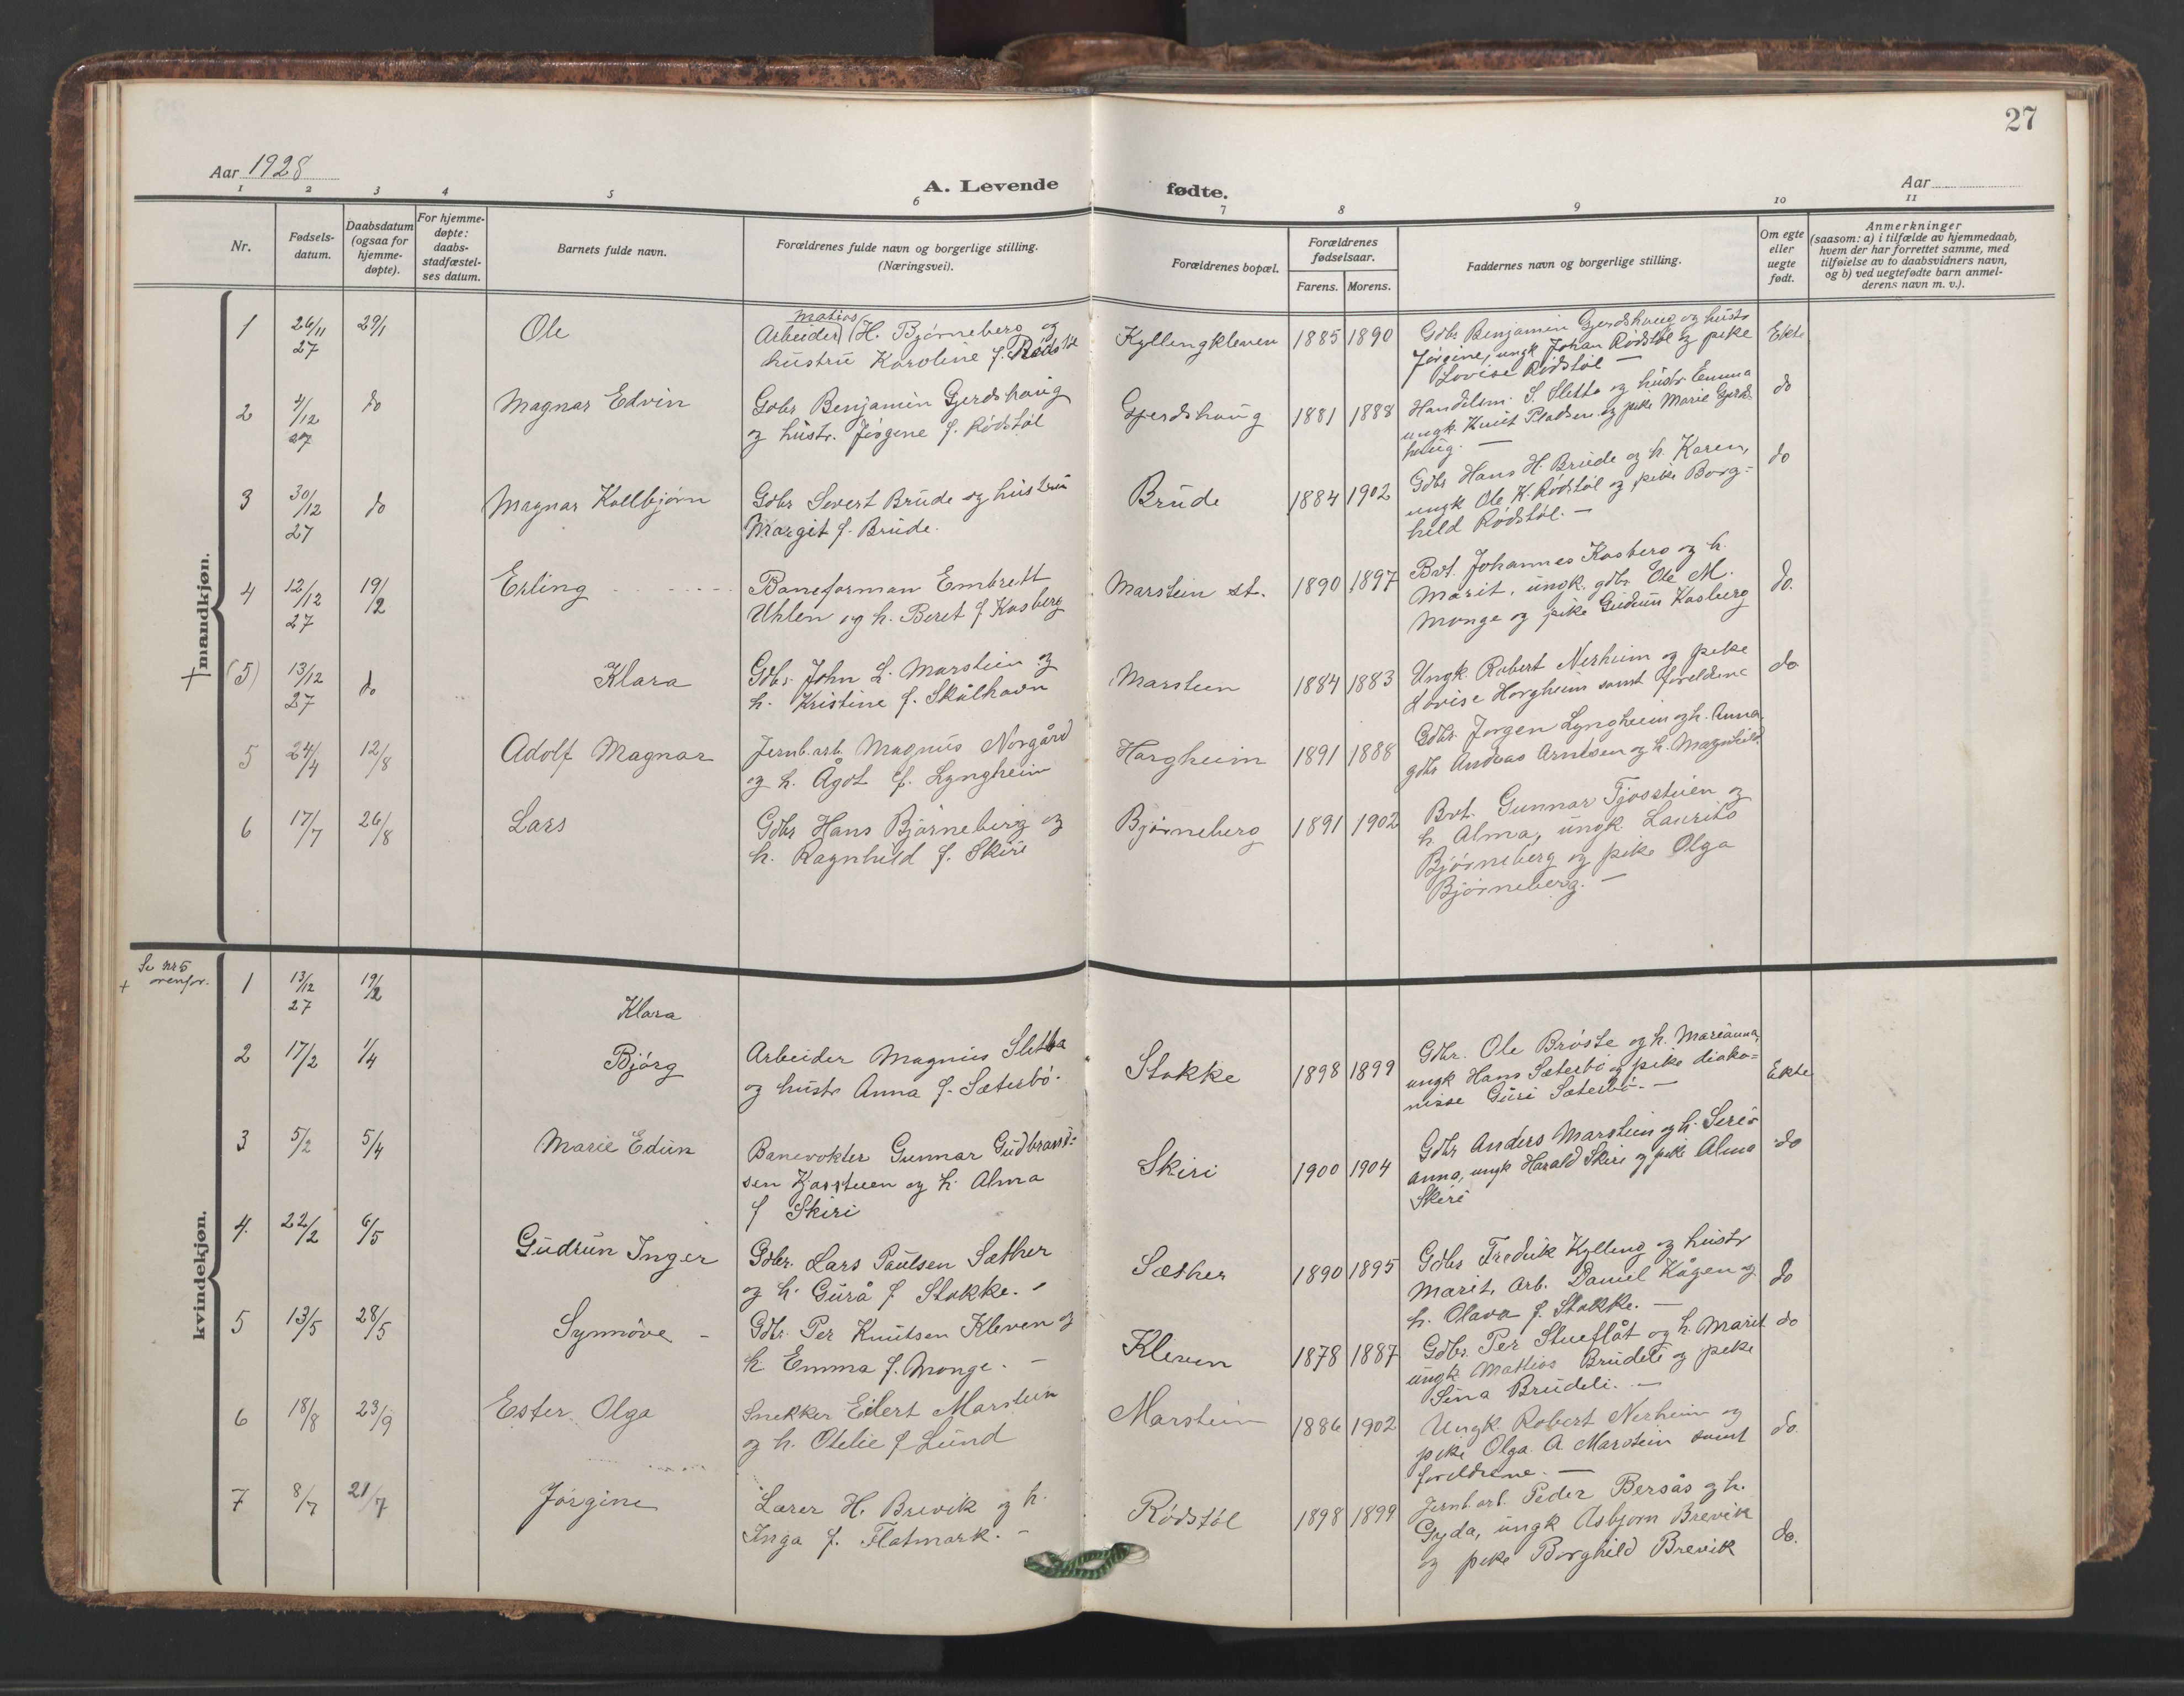 27
Aar 1928
A. Levende fødte.
Aar
1 2 3 4 5 6 7 8 9 10 11
Nr.
Fødsels-
datum.
Daabsdatum
(ogsaa for
hjemme-
døpte).
For hjemme-
døpte:
daabs-
stadfæstel-
ses datum.
Barnets fulde navn.
Forældrenes fulde navn og borgerlige stilling.
(Næringsvei).
Forældrenes bopæl.
Forældrenes
fødselsaar.
Farens. Morens.
Faddernes navn og borgerlige stilling.
Om egte
eller
uegte
født.
Anmerkninger
(saasom: a) i tilfælde av hjemmedaab,
hvem der har forrettet samme, med
tilføielse av to daabsvidners navn,
og b) ved uegtefødte barn anmel-
derens navn m. v.).
mandkjøn.
1
26/11
27
29/1
Ole
Matias
Arbeider (H. Bjørneberg og
hustru Karoline f. Rødstøl
Kyllingkleven
1885 1890
Gdbr Benjamin Gjerdshaug og hustr
Jørgine, ungk Johan Rødstøl og pike
Lovise Rødstøl —
Ekte
2
4/12
27
do
Magnar Edvin
Gdbr Benjamin Gjerdshaug
og hustr. Jørgine f. Rødstøl
Gjerdshaug
1881 1888
Handelsm. S. Sletta og hustr Emma
ungk. Knut Pladsen og pike Marie Gjerds
haug. —
do
3
30/12
27
do
Magnar Kollbjørn
Gdbr Severt Brude og hustru
Margit f. Brude.
Brude
1884 1902
Gdbr Hans H. Brude og h. Karen,
ungk Ole K. Rødstøl og pike Borg-
hild Rødstøl. —
do
4
12/12
27
19/2
Erling
Baneforman Embrett
Uhlen og h. Beret f. Kasberg
Marstein st.
1890 1897
Bvt. Johannes Kasberg og h.
Marit, ungk. gdbr. Ole M.
Monge og pike Gudrun Kasberg
do.
+ (5)
13/12
27
do
Klara
Gdbr. John L. Marstein og
h. Kristine f. Skålhavn
Marstein
1884 1883
Ungk. Robert Nerheim og pike
Lovise Horgheim samt foreldene
do
5
24/4
12/8
Adolf Magnar
Jernb.arb. Magnus Norgård
og h. Ågot f. Lyngheim
Horgheim
1891 1888
Gdbr. Jorgen Lyngheim og h. Anna.
gdbr Andreas Arnesen og h. Magnhild
6
17/7
26/8
Lars
Gdbr Hans Bjørneberg og
h. Ragnhild f. Skiri
Bjørneberg
1891 1902
Bvt. Gunnar Tjosstuen og
h. Alma, ungk. Laurits
Bjørneberg og pike Olga
Bjørneberg. —
kvindekjøn.
Se nr 5
+ ovenfor.
1
13/12
27
19/2
Klara
2
17/2
1/4
Bjørg
Arbeider Magnus Sletta
og hustr Anna f. Sæterbö.
Stokke
1898 1899
Gdbr. Ole Brøste og h. Marianna,
ungk Hans Sæterbö og pike diako-
nisse Guri Sæterbö. —
Ekte
3
5/2
5/4
Marie Edun
Banevokter Gunnar Gudbrand-
sen Kjosstuen og h. Alma
f Skiri
Skiri
1900 1904
Gdbr Anders Marstein og h. Seri-
anna, ungk Harald Skiri og pike Alma
Skiri
do
4.
22/2
6/5
Gudrun Inger
Gdbr. Lars Paulsen Sæther
og h. Gurå f Stokke. -
Sæther
1890 1895
Gdbr Fredrik Kylling og hustr
Marit, Arb. Daniel Kågen og
h. Olava f. Stokke. —
do
5
13/5
28/5
Synnöve -
Gdbr. Per Knutsen Kleven og
h. Emma f. Monge. —
Kleven
1878 1887
Gdbr. Per Stueflåt og h. Marit
ungk Mattias Brudeli og pike
Sina Brudeli. —
do
6
18/8
23/9
Ester Olga
Snekker Eilert Marstein
og h. Otelie f Lund
Marstein
1886 1902
Ungk. Robert Nerheim og
pike Olga A Marstein samt
foreldrene. —
do.
7
8/7
21/7
Jørgine
Lærer H. Brevik og h.
Inga f. Flatmark. -
Rødstøl
1898 1899
Jernb.arb. Peder Bersås og h.
Gyda, ungk Asbjørn Brevik
og pike Borghild Brevik
do.